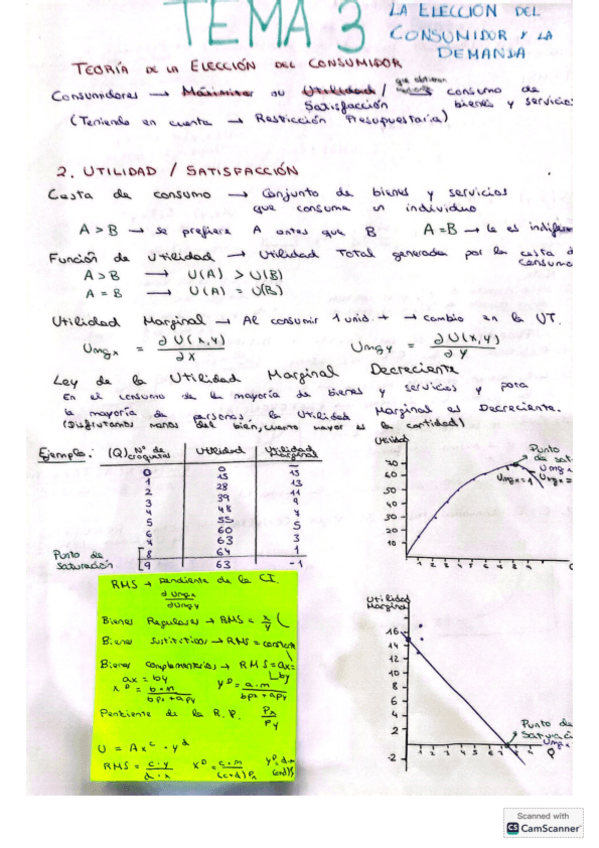 TEMA 3
LA ELECCIÓN DEL
CONSUMIDOR Y LA
DEMANDA
TEORÍA DE LA ELECCIÓN DEL CONSUMIDOR
que obtienen
Consumidores → Maximizar su Utilidad / → consumo de
Satisfacción bienes y servicios
(Teniendo en cuenta → Restricción Presupuestaria)
2. UTILIDAD / SATISFACCIÓN
Cesta de consumo → Conjunto de bienes y servicios
que consume un individuo
A > B → se prefiere A antes que B A = B → le es indifere
Función de Utilidad → Utilidad Total generada por la cesta d
consumo
A > B → U(A) > U(B)
A = B → U(A) = U(B)
Utilidad Marginal → Al consumir 1 unid. + → cambio en la UT.
Umgx = ∂U(x,y) / ∂x Umgy = ∂U(x,y) / ∂y
Ley de la Utilidad Marginal Decreciente
En el consumo de la mayoría de bienes y servicios y para
la mayoría de personas, la Utilidad Marginal es Decreciente.
(Disfrutamos menos del bien, cuanto mayor es la cantidad)
Ejemplo: (Q) Nº de croquetas Utilidad Utilidad Marginal
0 0 —
1 15 15
2 28 13
3 39 11
4 48 9
5 55 7
6 60 5
7 63 3
8 64 1
9 63 -1
Punto de
saturación
Utilidad
Punto
de sat
Umg
Umgx=1
70
60
50
40
30
20
10
1 2 3 4 5 6 7 8 9
RMS → pendiente de la CI.
∂Umgx
∂Umgy
Bienes Regulares → RMS = x/y (
Bienes Sustitutivos → RMS = constante
Bienes Complementarios → RMS = ax =
by
ax = by
xᴰ = b·m / bpx + apy yᴰ = a·m / bpx + apy
Pendiente de la R.P. Px / Py
U = Axᶜ · yᵈ
RMS = c·y / d·x xᴰ = c·m / (c+d)Px yᴰ = d·m / (c+d)
Utilidad
Marginal
16
14
12
10
8
6
4
2
-2
Punto de
Saturaci
Umgx
1 2 3 4 5 6 7 8 9 Q
Scanned with
CS CamScanner